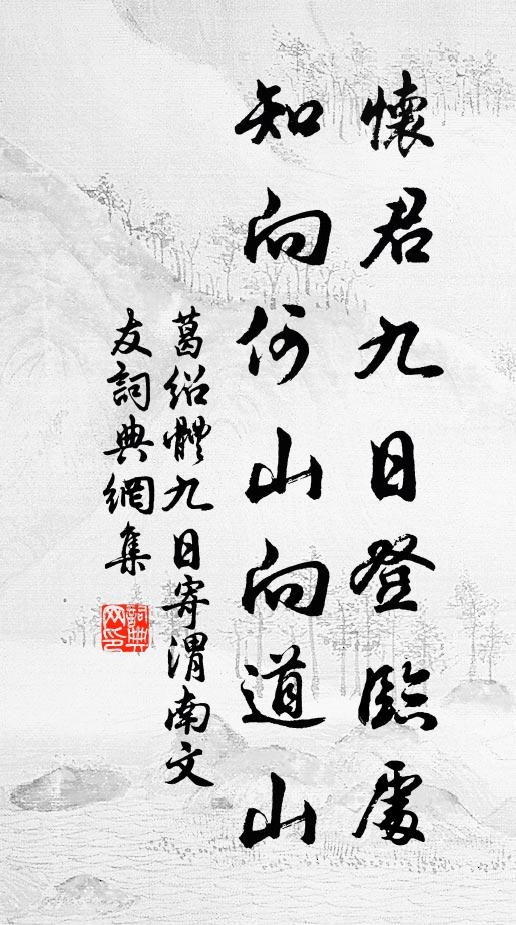 懷君九日登臨處
知向何山向道山
葛紹體九日寄渭南文
友詞典網集
詞典
网印